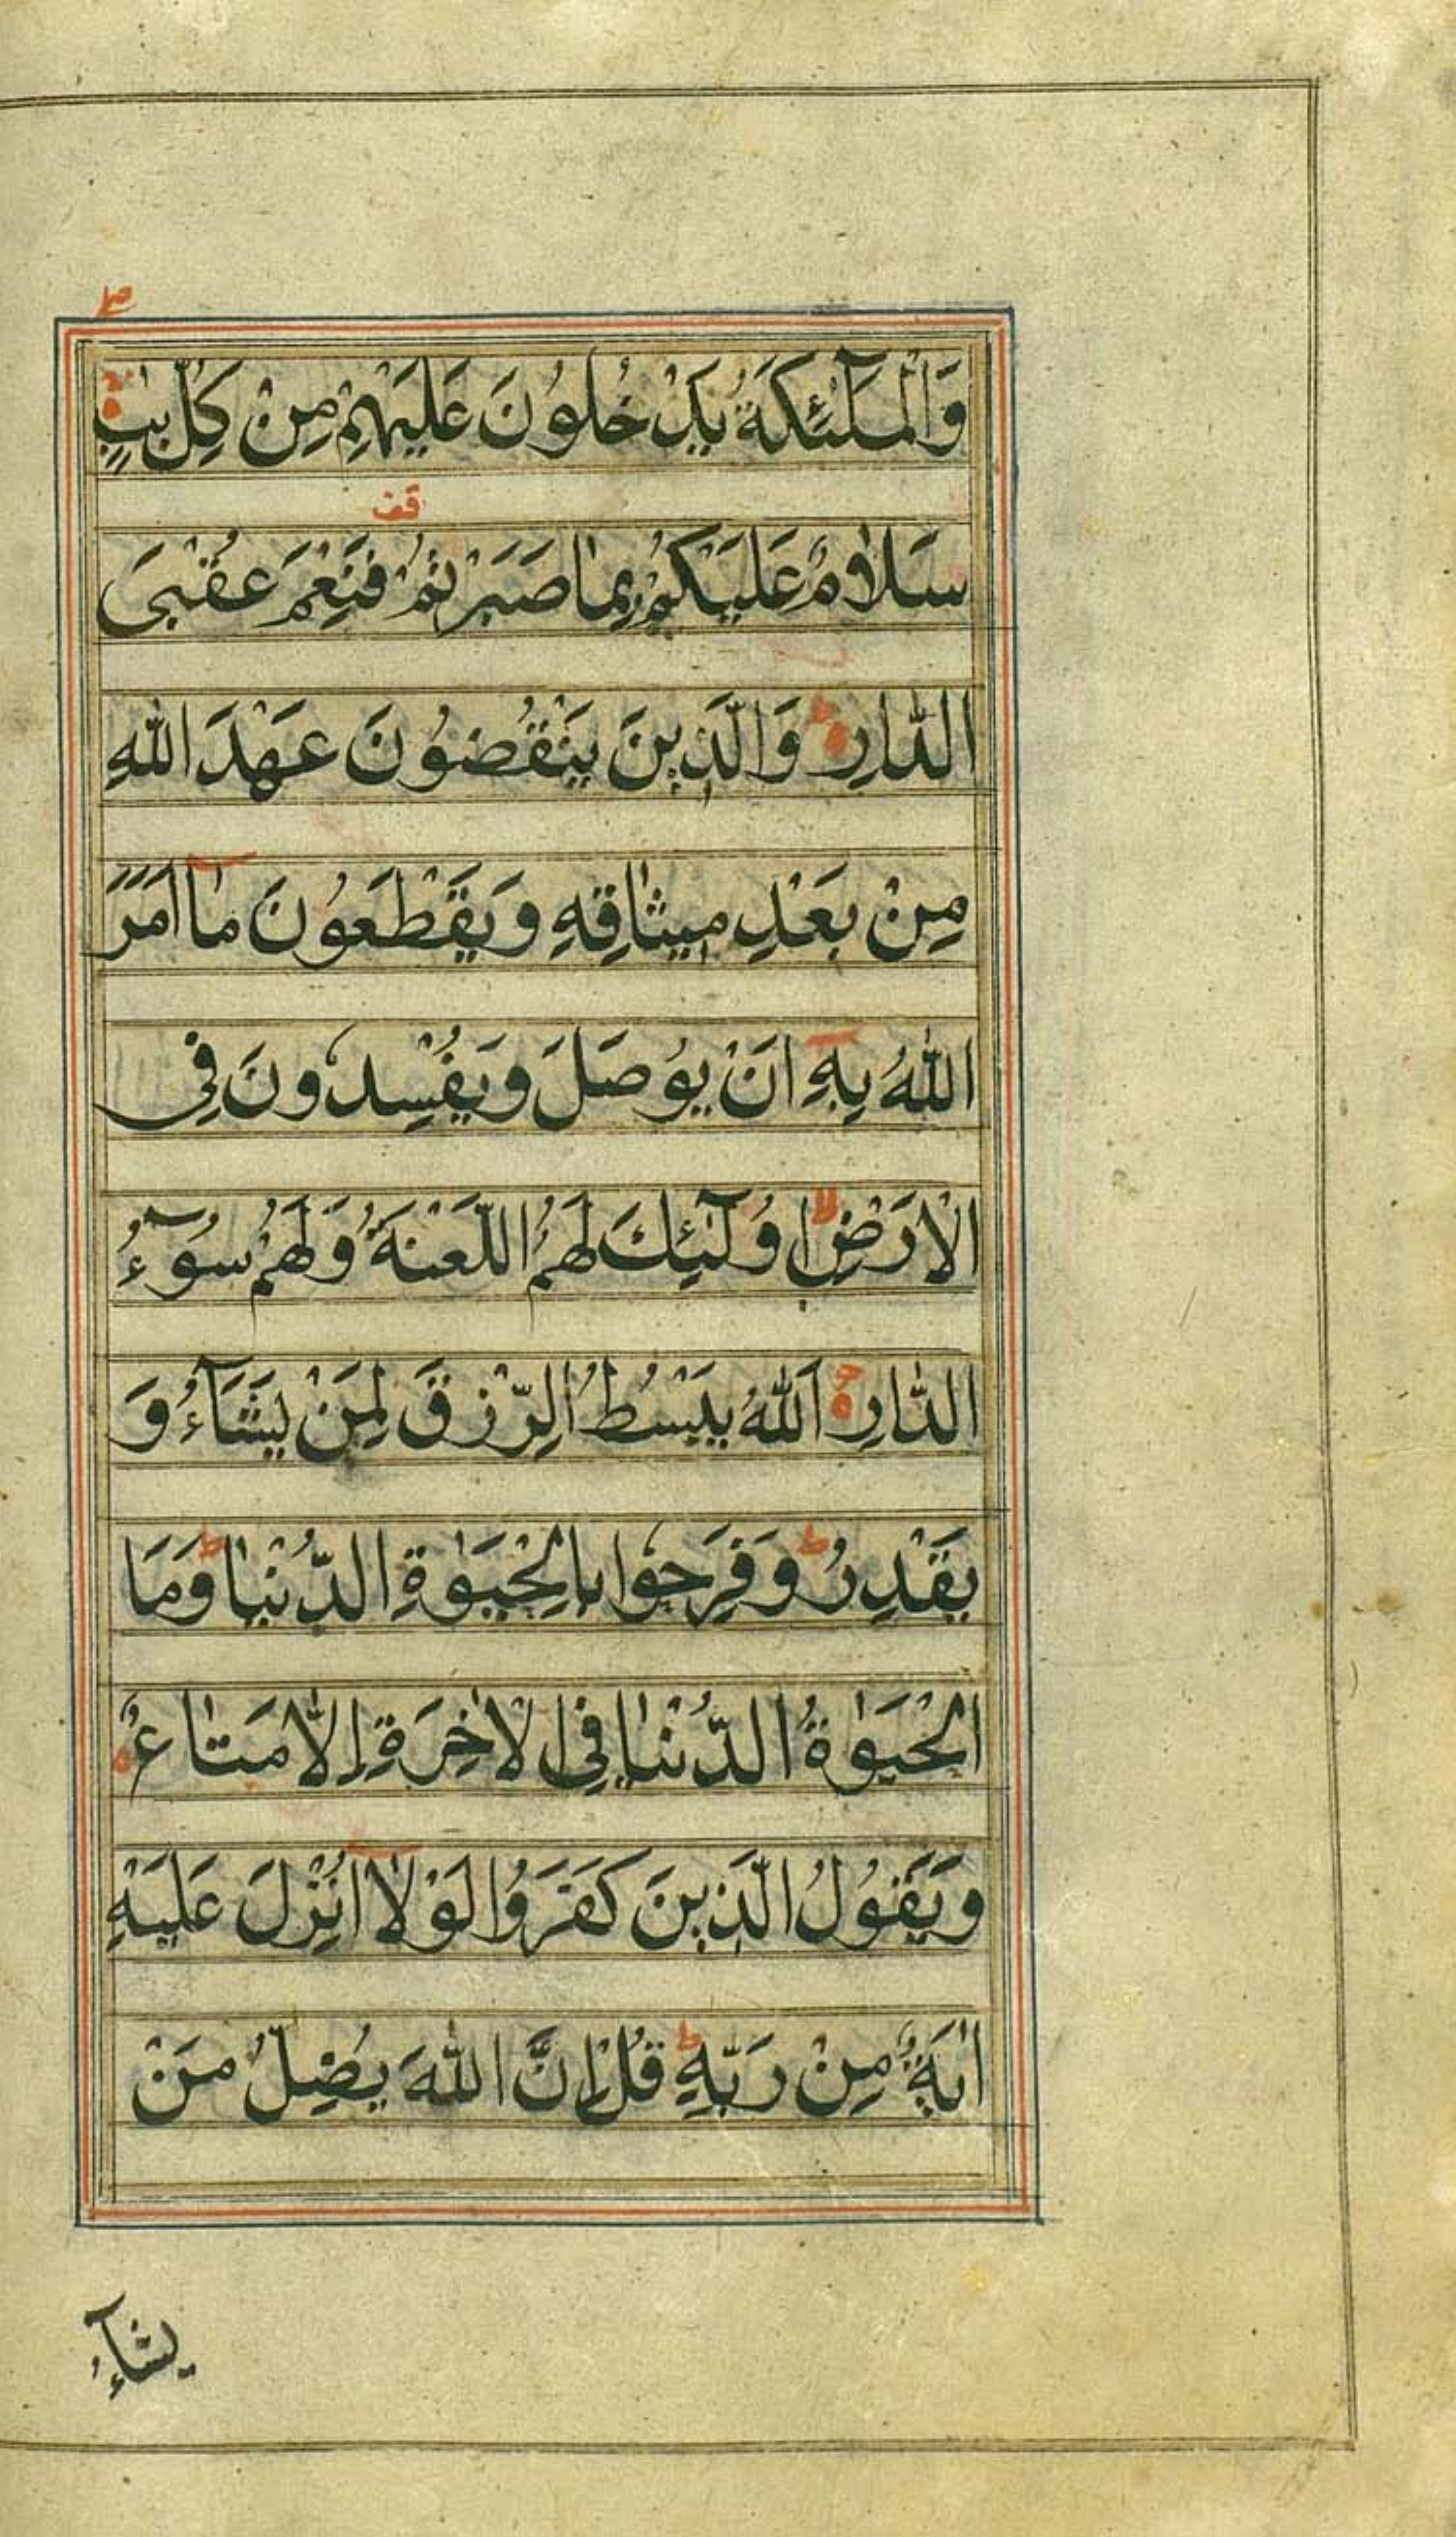 وَالْمَلٰٓئِكَةُ يَدْخُلُونَ عَلَيْهِمْ مِنْ كُلِّ بٰبٍ
قف
سَلٰامٌ عَلَيْكُمْ بِمٰا صَبَرْتُمْ فَنِعْمَ عُقْبَى
الدّٰارِ ط وَالَّذِينَ يَنْقُضُونَ عَهْدَ اللّٰهِ
مِنْ بَعْدِ مِيثٰاقِهِ وَيَقْطَعُونَ مٰا اَمَرَ
اللّٰهُ بِهِ اَنْ يُوصَلَ وَيُفْسِدُونَ فِى
الْاَرْضِ لا اُولٰٓئِكَ لَهُمُ اللَّعْنَةُ وَلَهُمْ سُوٓءُ
الدّٰارِ اَللّٰهُ يَبْسُطُ الرِّزْقَ لِمَنْ يَشَآءُ وَ
يَقْدِرُ ط وَفَرِحُوا بِالْحَيَوٰةِ الدُّنْيٰا ط وَمَا
الْحَيَوٰةُ الدُّنْيٰا فِى الْاٰخِرَةِ اِلّٰا مَتٰاعٌ
وَيَقُولُ الَّذِينَ كَفَرُوا لَوْلٰا اُنْزِلَ عَلَيْهِ
اٰيَةٌ مِنْ رَبِّهِ ط قُلْ اِنَّ اللّٰهَ يُضِلُّ مَنْ
يشآء